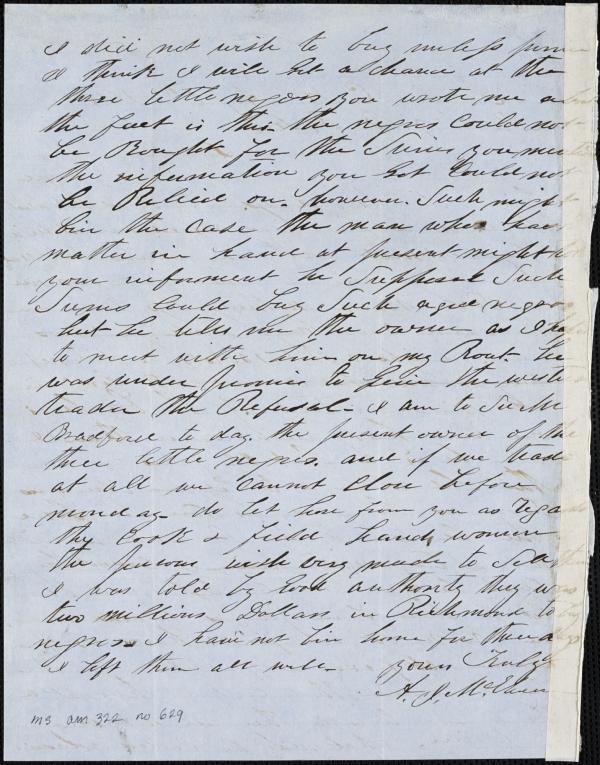 I did not wish to buy unless
I think I will get a chance at the
three little negros you wrote me
the fact is this the negros could not
be Bought for the Sums you
the information you got could not
be Relied on. however. Such might
bin the case the man who has
matter in hand at present might
your informent he Supposed Such
Sums could buy Such negros
but he tells me the owner as I
to meet with him on my Rout. he
was under promis to give the
trader the Refusal - I am to
Bradford to day the present owner of the
three little negros. and if we trade
at all we cannot close before
monday - do let hear from you as
the Cook & field hands women
the wish very much to Sell
I was told by good authority they was
two millions Dollars in Richmond to
negros - I have not bin home for
I left them all well - yours Truly
A. J. McElveen
ms am 322 no 629